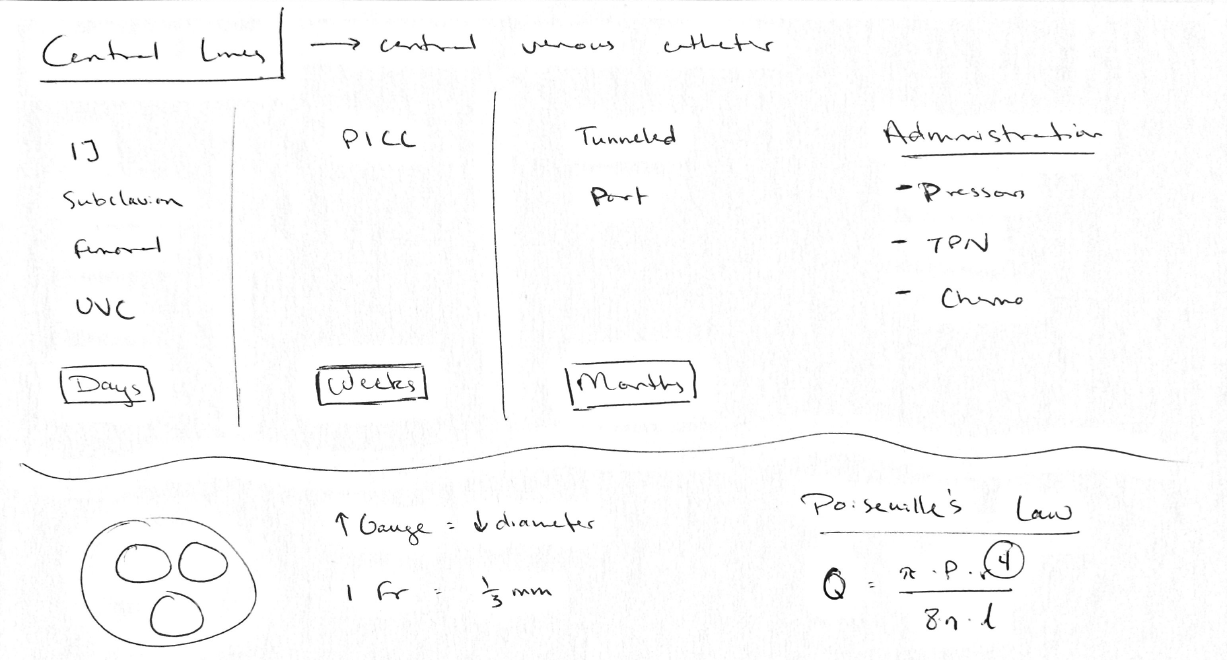 Central Lines → central venous catheter
IJ
Subclavian
Femoral
UVC
Days
PICC
Weeks
Tunneled
Port
Months
Administration
- Pressors
- TPN
- Chemo
↑ Gauge = ↓ diameter
1 Fr = 1/3 mm
Poiseuille's Law
Q = π · P · r⁴ / 8 · η · l